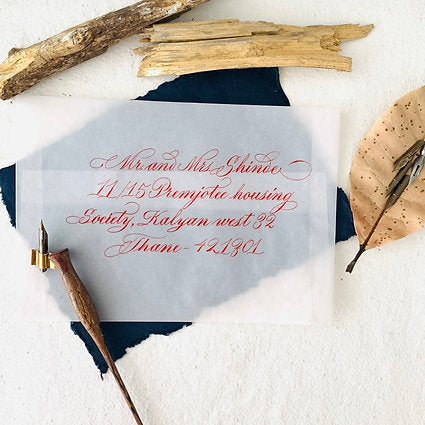 Mr. and Mrs. Shinde
11/15 Premjotee housing
Society, Kalyan west 32
Thane - 421301